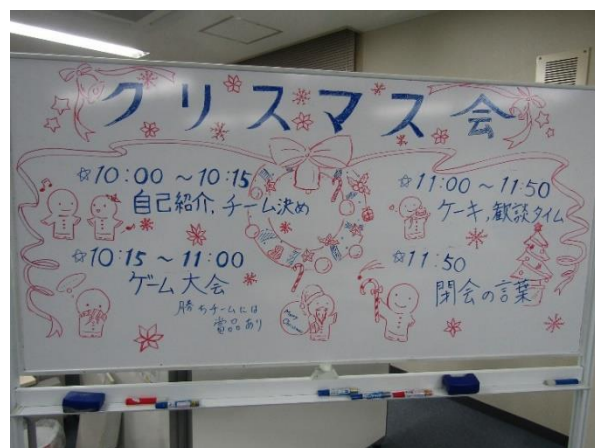 クリスマス会
☆10:00 ～10:15
自己紹介,チーム決め
☆10:15 ～ 11:00
ゲーム大会
勝ちチームには
賞品あり
☆11:00 ～ 11:50
ケーキ,歓談タイム
☆11:50
閉会の言葉
Merry
Christmas